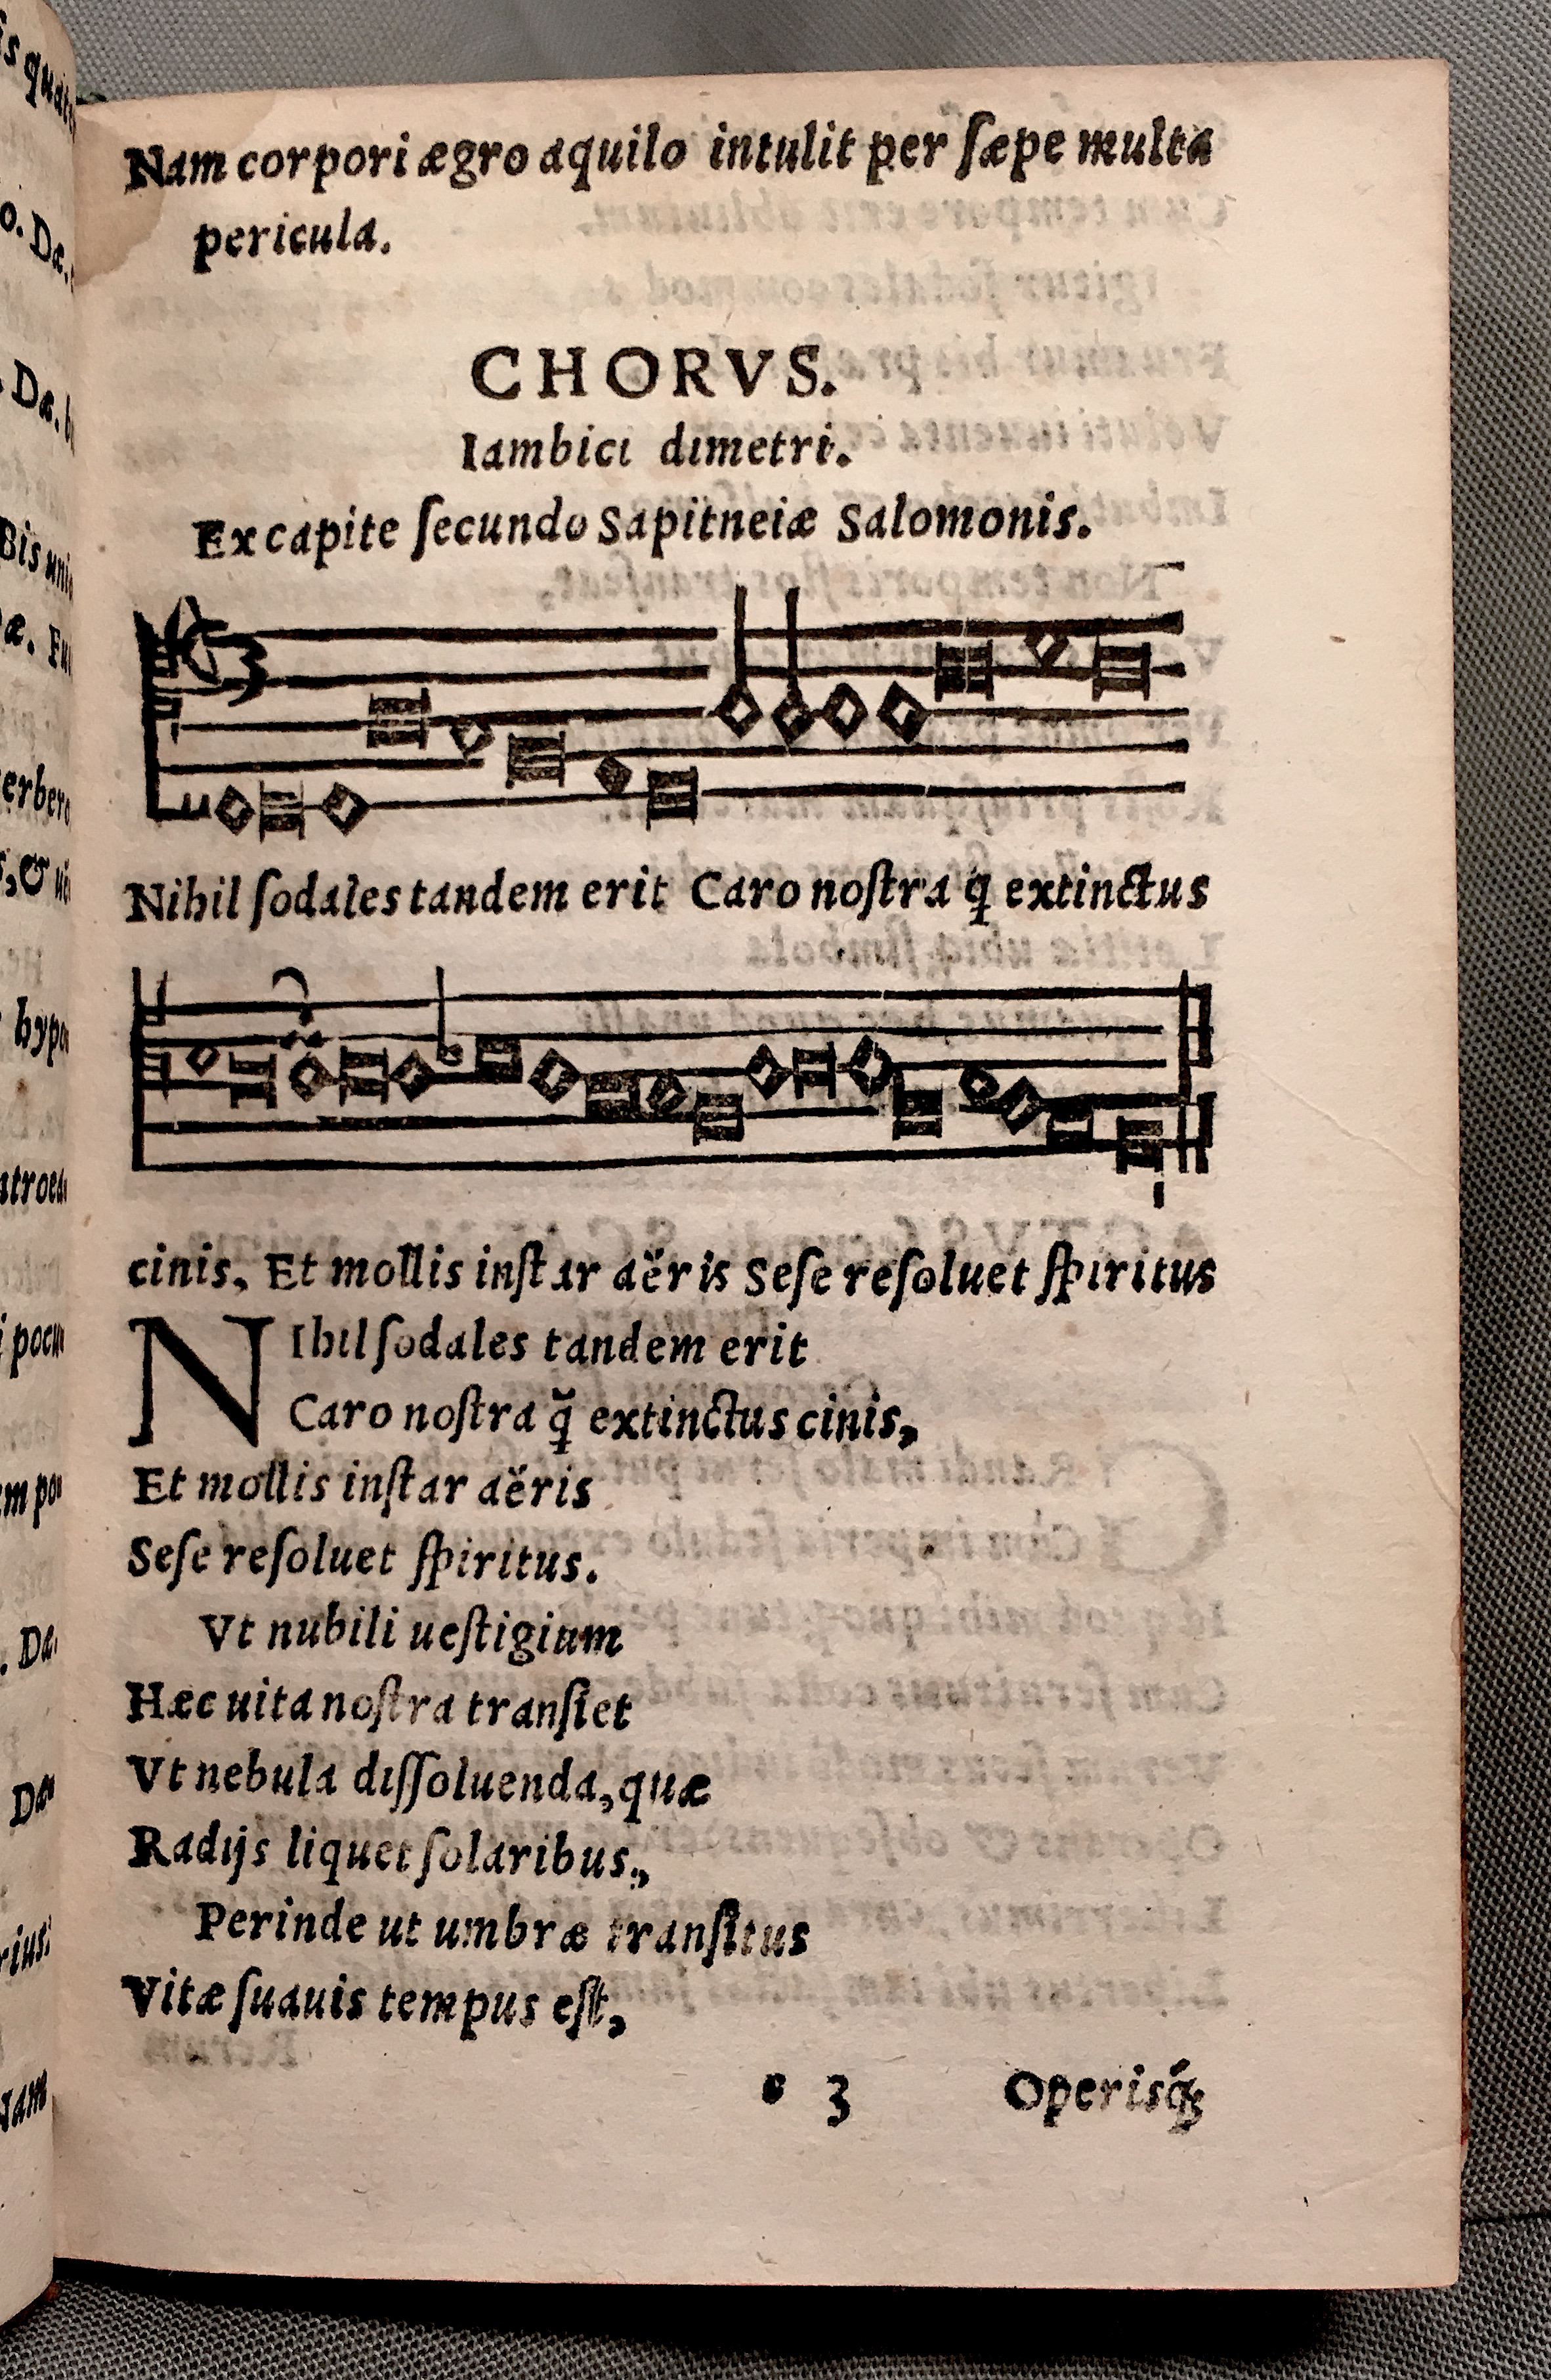 Nam corpori ægro aquilo intulit per ſæpe multa
pericula.
CHORVS.
Iambici dimetri.
Ex capite ſecundo Sapitneiæ Salomonis.
Nihil ſodales tandem erit Caro noſtra q̃ extinctus
cinis, Et mollis inſtar aëris Seſe reſoluet ſpiritus
NIhil ſodales tandem erit
Caro noſtra q̃ extinctus cinis,
Et mollis inſtar aëris
Seſe reſoluet ſpiritus.
Vt nubili ueſtigium
Hæc uita noſtra tranſiet
Vt nebula diſſoluenda, quæ
Radijs liquet ſolaribus.,
Perinde ut umbræ tranſitus
Vitæ ſuauis tempus eſt,
3 Operisq́ꝫ